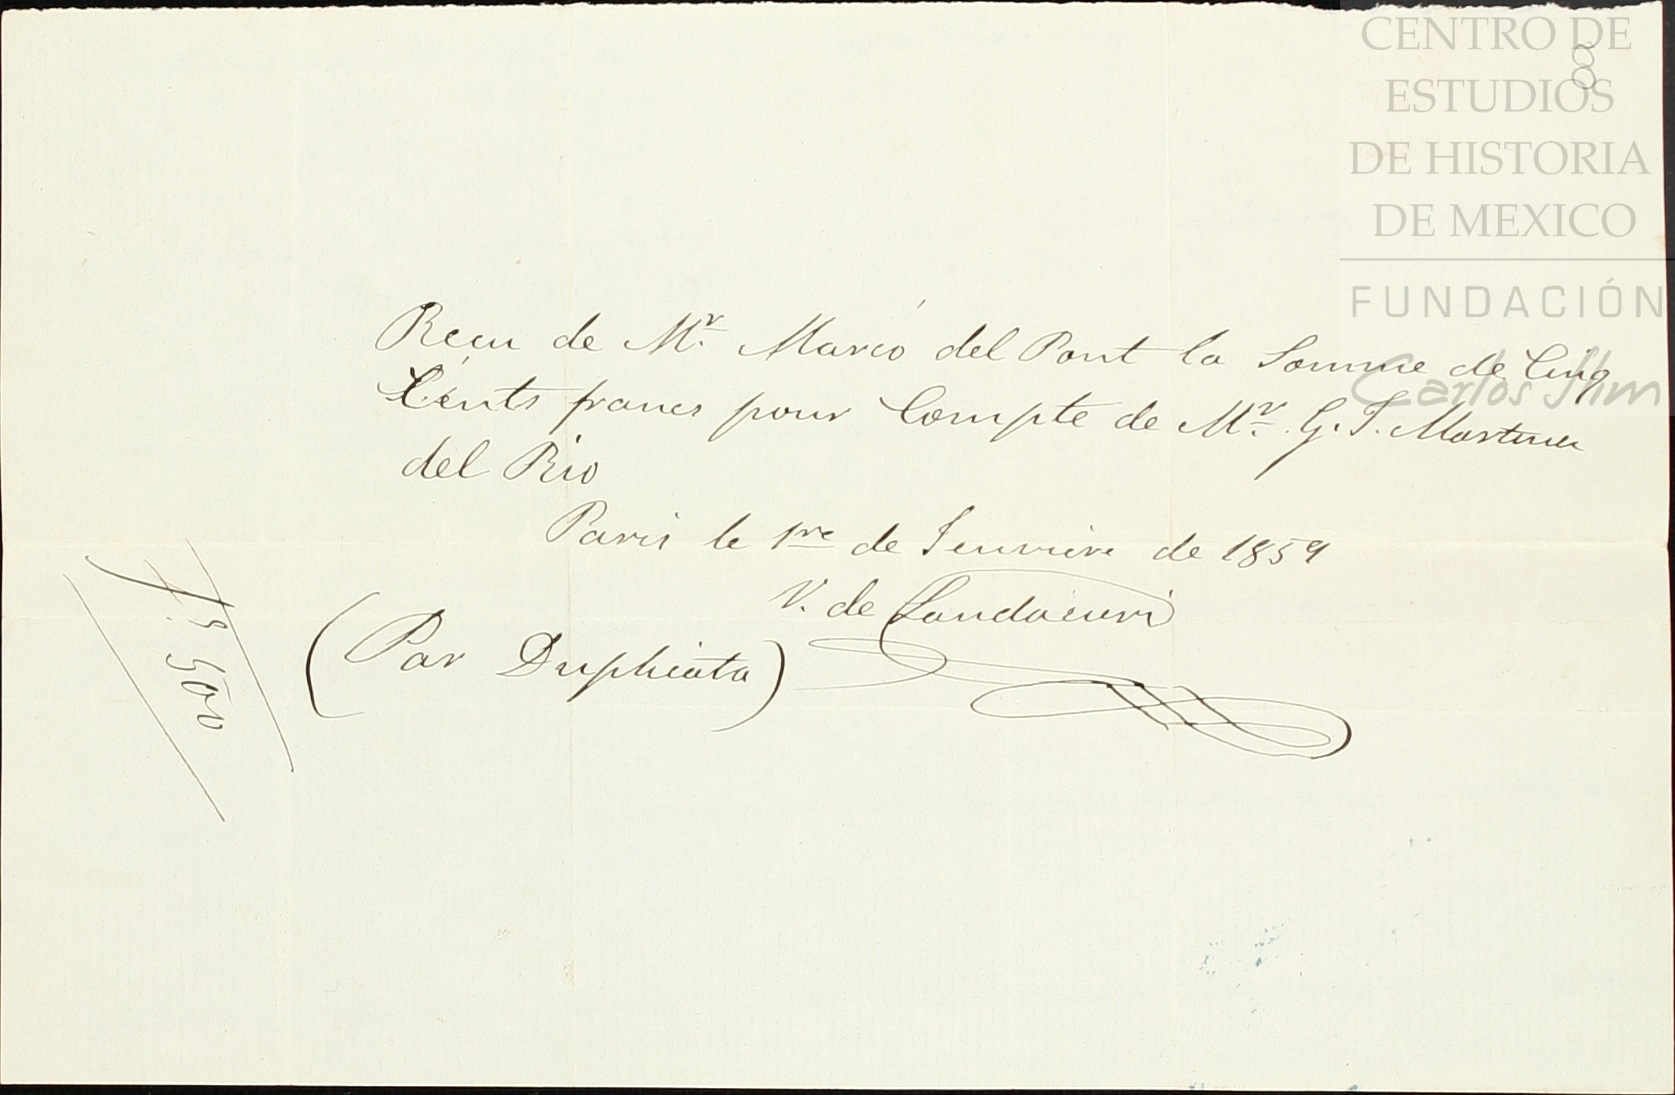 CENTRO DE
ESTUDIOS
DE HISTORIA
DE MEXICO
FUNDACIÓN
Carlos Slim
8
Recu de Mr. Marcó del Pont la Somme de Cinq
Cents francs pour Compte de Mr. G. F. Martinez
del Rio
Paris le 1re de Jenvière de 1859
V. de Landacuri
(Par Duplicata)
f.s 500